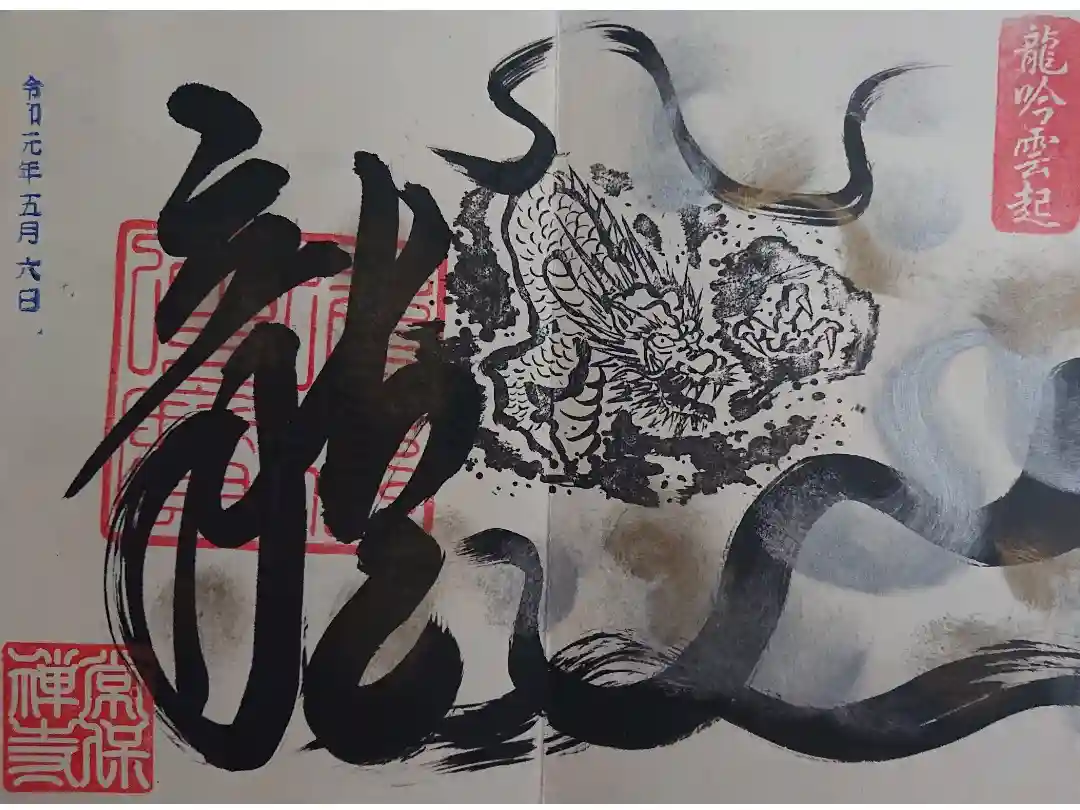 龍吟雲起
龍
令和元年五月六日
常保
禅寺